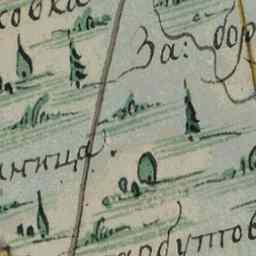 ковка
За: бор
ница.
арбутов